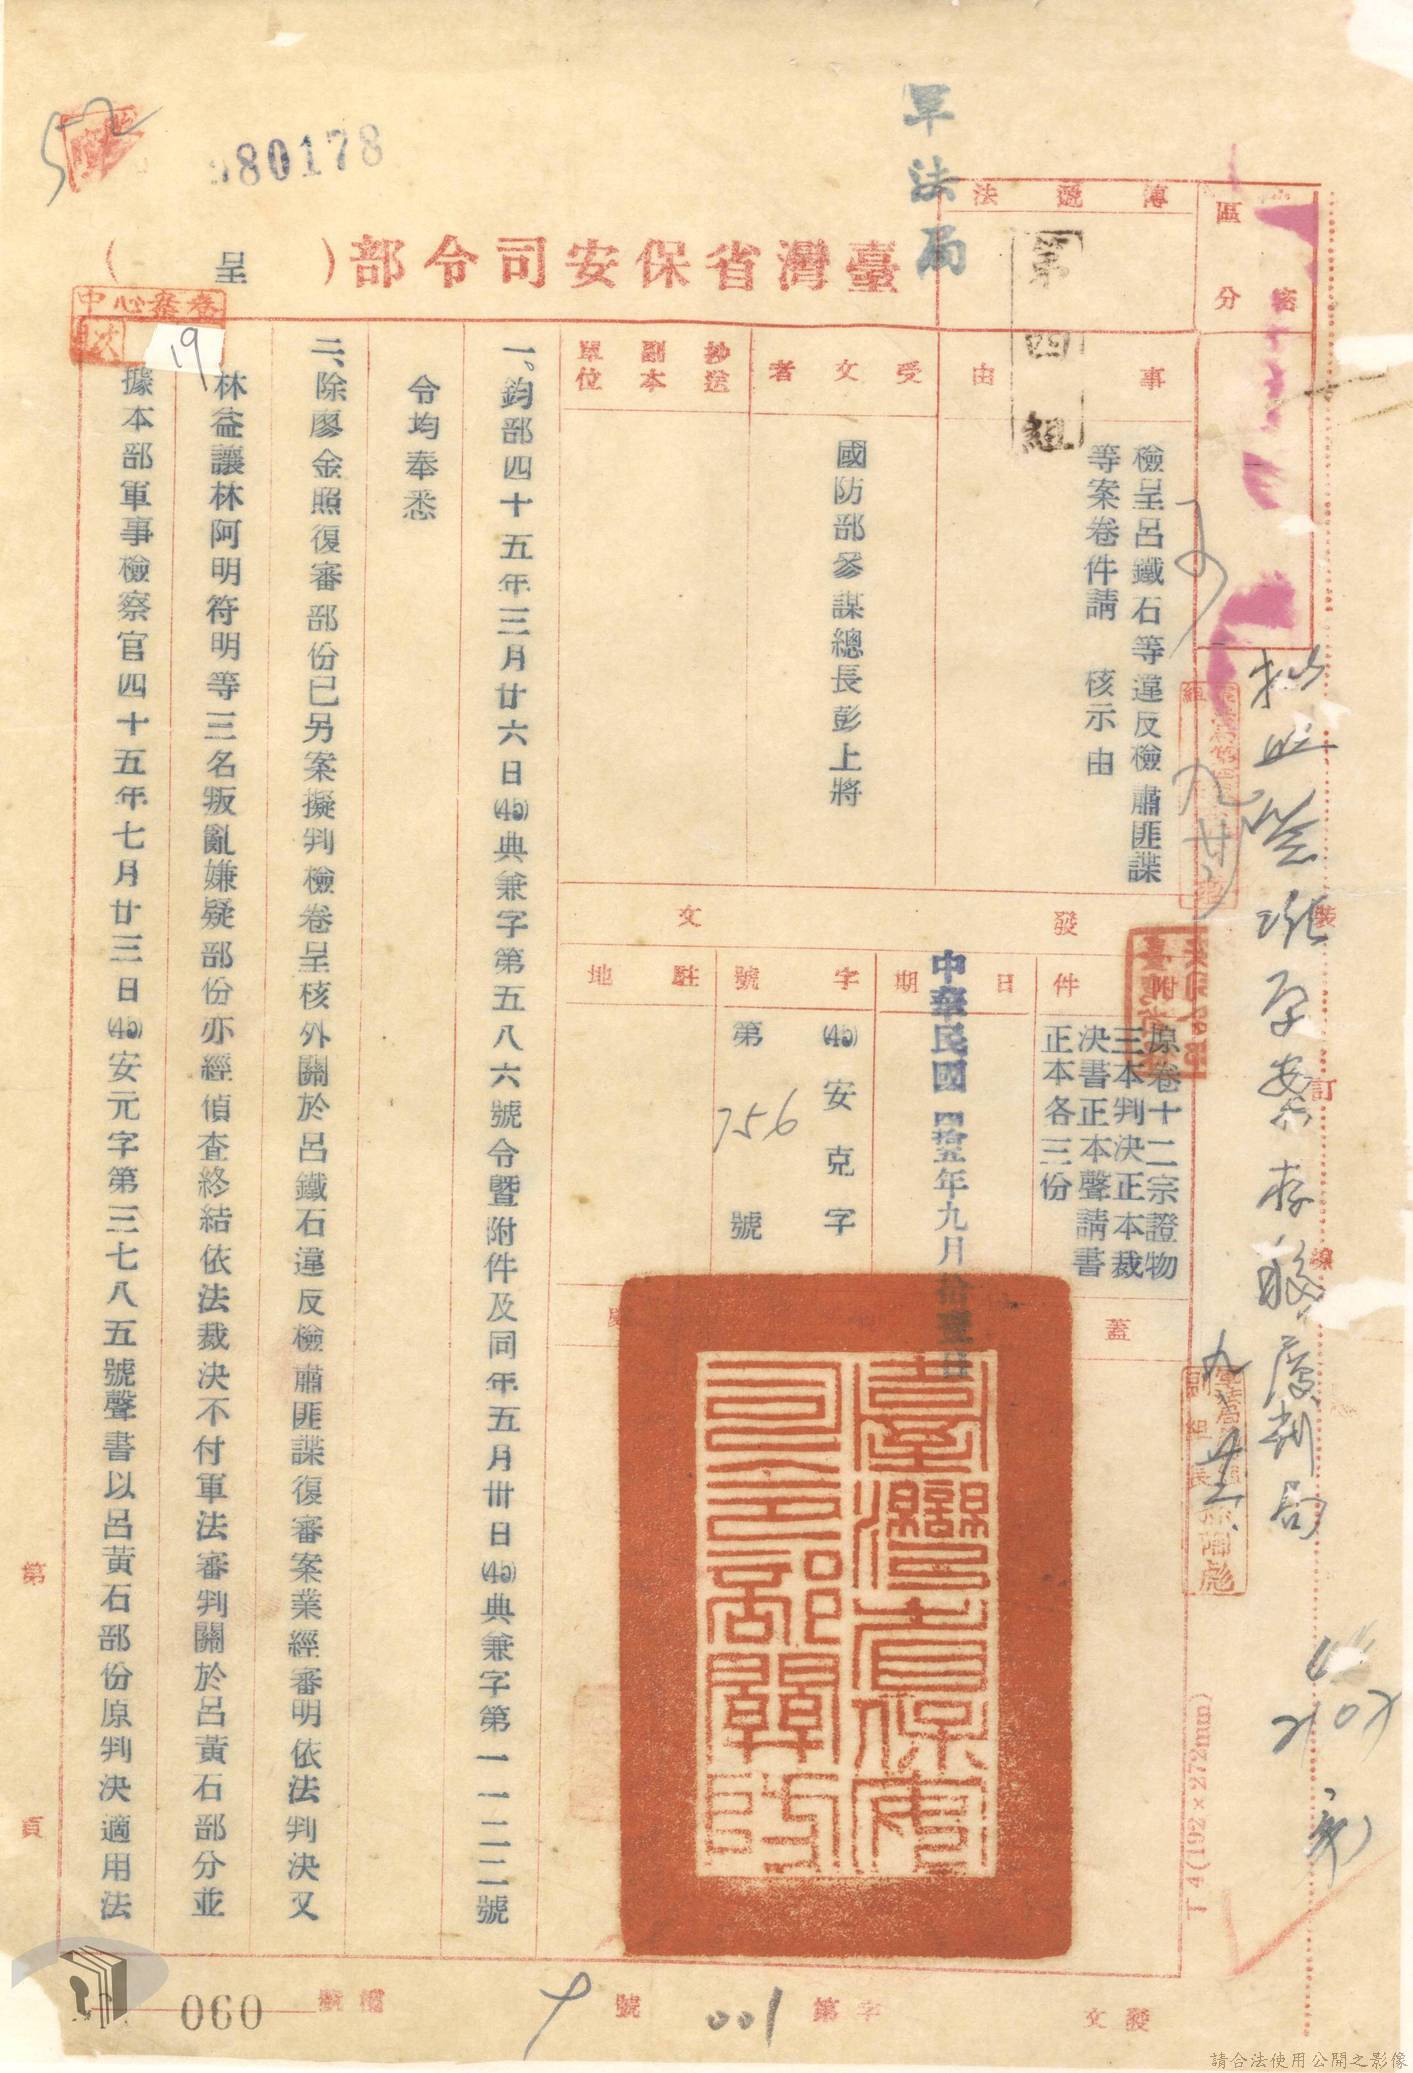 軍法局
第四組
980178
52
臺灣省保安司令部(呈)
檔案中心
19
區分
傳遞法
事由
檢呈呂鐵石等違反檢肅匪諜
等案卷件請 核示由
受文者
國防部參謀總長彭上將
抄送副本單位
發文
附件
原卷十二宗證物
三本判決正本裁
決書正本聲請書
正本各三份
日期
中華民國四拾五年九月拾壹日
字號
(45)安克字
第756號
駐地
蓋
臺灣省保安司令部關防
一、鈞部四十五年三月廿六日(45)典兼字第五八六號令暨附件及同年五月卅日(45)典兼字第一一二二號
令均奉悉
二、除廖金照復審部份已另案擬判檢卷呈核外關於呂鐵石違反檢肅匪諜復審案業經審明依法判決又
林益讓林阿明符明等三名叛亂嫌疑部份亦經偵查終結依法裁決不付軍法審判關於呂黃石部分並
據本部軍事檢察官四十五年七月廿三日(45)安元字第三七八五號聲書以呂黃石部份原判決適用法
裝
訂
線
副組長
T4(192×272mm)
第
頁
發文
字第001號
檔號
060
請合法使用公開之影像